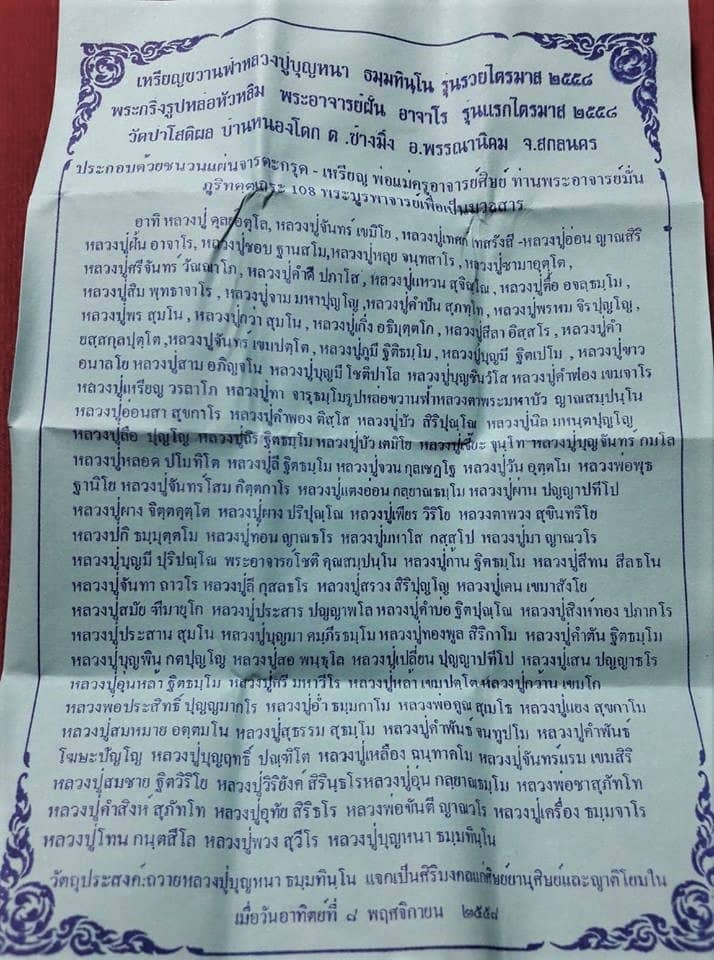 เหรียญขวานฟ้าหลวงปู่บุญหนา ธมฺมทินฺโน รุ่นรวยไตรมาส ๒๕๕๘
พระกริ่งรูปหล่อหัวหลิม พระอาจารย์ฝั้น อาจาโร รุ่นแรกไตรมาส ๒๕๕๘
วัดป่าโสติผล บ้านหนองโดก ต.ช้างมิ่ง อ.พรรณานิคม จ.สกลนคร
ประกอบด้วยชนวนแผ่นจารตะกรุด - เหรียญ พ่อแม่ครูอาจารย์ศิษย์ ท่านพระอาจารย์มั่น
ภูริทตฺตเถระ 108 พระบูรพาจารย์เพื่อเป็นมวลสาร
อาทิ หลวงปู่ ดุลย์อตุโล, หลวงปู่จันทร์ เขมิโย, หลวงปู่เทศก์ เทสรังสี -หลวงปู่อ่อน ญาณสิริ
หลวงปู่ฝั้น อาจาโร, หลวงปู่ชอบ ฐานสโม,หลวงปู่หลุย จนฺทสาโร, หลวงปู่ชามาอุตฺโต,
หลวงปู่ศรีจันทร์ วัณฺณาโภ, หลวงปู่คำดี ปภาโส, หลวงปู่แหวน สุจิณฺโณ, หลวงปู่ตื้อ อจลธมฺโม,
หลวงปู่สิม พุทธาจาโร, หลวงปู่จาม มหาปุญฺโญ ,หลวงปู่คำปัน สุภทฺโท, หลวงปู่พรหม จิรปุญฺโญ,
หลวงปู่พร สุมโน, หลวงปู่กว่า สุมโน, หลวงปู่เกิ่ง อธิมุตฺตโก, หลวงปู่สีลา อิสฺสโร, หลวงปู่คำ
ยสฺสกุลปุตฺโต,หลวงปู่จันทร์ เขมปตฺโต, หลวงปู่ภูมี ฐิติธมฺโม, หลวงปู่บุญมี ฐิตเปโม, หลวงปู่ขาว
อนาลโย หลวงปู่สาม อภิญฺจโน หลวงปู่บุญมี โชติปาโล หลวงปู่บุญชินวํโส หลวงปู่คำฟอง เขมจาโร
หลวงปู่เหรียญ วรลาโภ หลวงปู่ทา จารุธมฺโมรูปหล่อขวานฟ้าหลวงตาพระมหาบัว ญาณสมฺปนฺโน
หลวงปู่อ่อนสา สุขกาโร หลวงปู่คำพอง ติสฺโส หลวงปู่บัว สิริปุณฺโณ หลวงปู่นิล มหนฺตปุญฺโญ
หลวงปู่ลือ ปุญฺโญ หลวงปู่ถิร ฐิตธมฺโม หลวงปู่บัว เตมิโย หลวงปู่เจี๊ยะ จุนฺโท หลวงปู่บุญจันทร์ กมโล
หลวงปู่หลอด ปโมทิโต หลวงปู่ลี ฐิตธมฺโม หลวงปู่จวน กุลเชฏฺโฐ หลวงปู่วัน อุตฺตโม หลวงพ่อพุธ
ฐานิโย หลวงปู่จันทร์โสม กิตฺตกาโร หลวงปู่แตงอ่อน กลฺยาณธมฺโม หลวงปู่ผ่าน ปญฺญาปทีโป
หลวงปู่ผาง จิตฺตคุตฺโต หลวงปู่ผาง ปริปุณฺโณ หลวงปู่เพียร วิริโย หลวงตาพวง สุขินทริโย
หลวงปู่ภิ ธมฺมุตฺตโม หลวงปู่ท่อน ญาณธโร หลวงปู่มหาโส กสฺสโป หลวงปู่มา ญาณวโร
หลวงปู่บุญมี ปุริปณฺโณ พระอาจารย์โชติ คุณสมฺปนฺโน หลวงปู่ก้าน ฐิตธมฺโม หลวงปู่สีทน สีลธโน
หลวงปู่จันทา ถาวโร หลวงปู่ลี กุสลธโร หลวงปู่สรวง สิริปุญฺโญ หลวงปู่เคน เขมาสังโย
หลวงปู่สมัย ฑีมายุโก หลวงปู่ประสาร ปญฺญาพโล หลวงปู่คำบ่อ ฐิตปุณฺโณ หลวงปู่สิงห์ทอง ปภากโร
หลวงปู่ประสาน สุมโน หลวงปู่บุญมา คมฺภีรธมฺโม หลวงปู่ทองพูล สิริกาโม หลวงปู่คำตัน ฐิตธมฺโม
หลวงปู่บุญพิน กตปุญฺโญ หลวงปู่สอ พนฺธุโล หลวงปู่เปลี่ยน ปุญฺญาปทีโป หลวงปู่เสน ปญฺญาธโร
หลวงปู่อุ่นหล้า ฐิตธมฺโม หลวงปู่ศรี มหาวีโร หลวงปู่หล้า เขมปตฺโต หลวงปู่กว้าน เขมโก
หลวงพ่อประสิทธิ์ ปุญฺญมากโร หลวงปู่อ่ำ ธมฺมกาโม หลวงพ่อคูณ สุเมโธ หลวงปู่แยง สุขกาโม
หลวงปู่สมหมาย อตฺตมโน หลวงปู่สุธรรม สุธมฺโม หลวงปู่คำพันธ์ จนฺทูปโม หลวงปู่คำพันธ์
โฆษะปัญฺโญ หลวงปู่บุญฤทธิ์ ปณฺฑิโต หลวงปู่เหลือง ฉนฺทาคโม หลวงปู่จันทร์แรม เขมสิริ
หลวงปู่สมชาย ฐิตวิริโย หลวงปู่วิริยังค์ สิรินฺธโรหลวงปู่อุ่น กลฺยาณธมฺโม หลวงพ่อชาสุภัทโท
หลวงปู่คำสิงห์ สุภัทโท หลวงปู่อุทัย สิริธโร หลวงพ่อขันตี ญาณวโร หลวงปู่เครื่อง ธมฺมจาโร
หลวงปู่โทน กนฺตสีโล หลวงปู่พวง สุวีโร หลวงปู่บุญหนา ธมฺมทินฺโน
วัตถุประสงค์:ถวายหลวงปู่บุญหนา ธมฺมทินฺโน แจกเป็นศิริมงคลแก่ศิษย์ยานุศิษย์และญาติโยมใน
เมื่อวันอาทิตย์ที่ ๘ พฤศจิกายน ๒๕๕๘